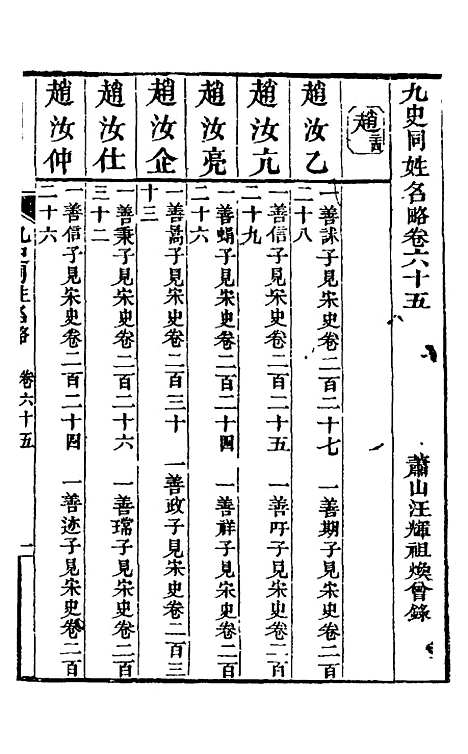 九史同姓名略卷六十五
蕭山汪輝祖煥曾錄
趙
趙汝乙
一善訹子見宋史卷二百二十七 一善期子見宋史卷二百
二十八
趙汝亢
一善信子見宋史卷二百二十五 一善吁子見宋史卷二百
二十九
趙汝亮
一善蜎子見宋史卷二百二十四 一善祥子見宋史卷二百
二十六
趙汝企
一善暠子見宋史卷二百三十 一善政子見宋史卷二百三
十三
趙汝仕
一善秉子見宋史卷二百二十六 一善瑺子見宋史卷二百
三十二
趙汝仲
一善信子見宋史卷二百二十四 一善迹子見宋史卷二百
二十六
九史同姓名略 卷六十五 一